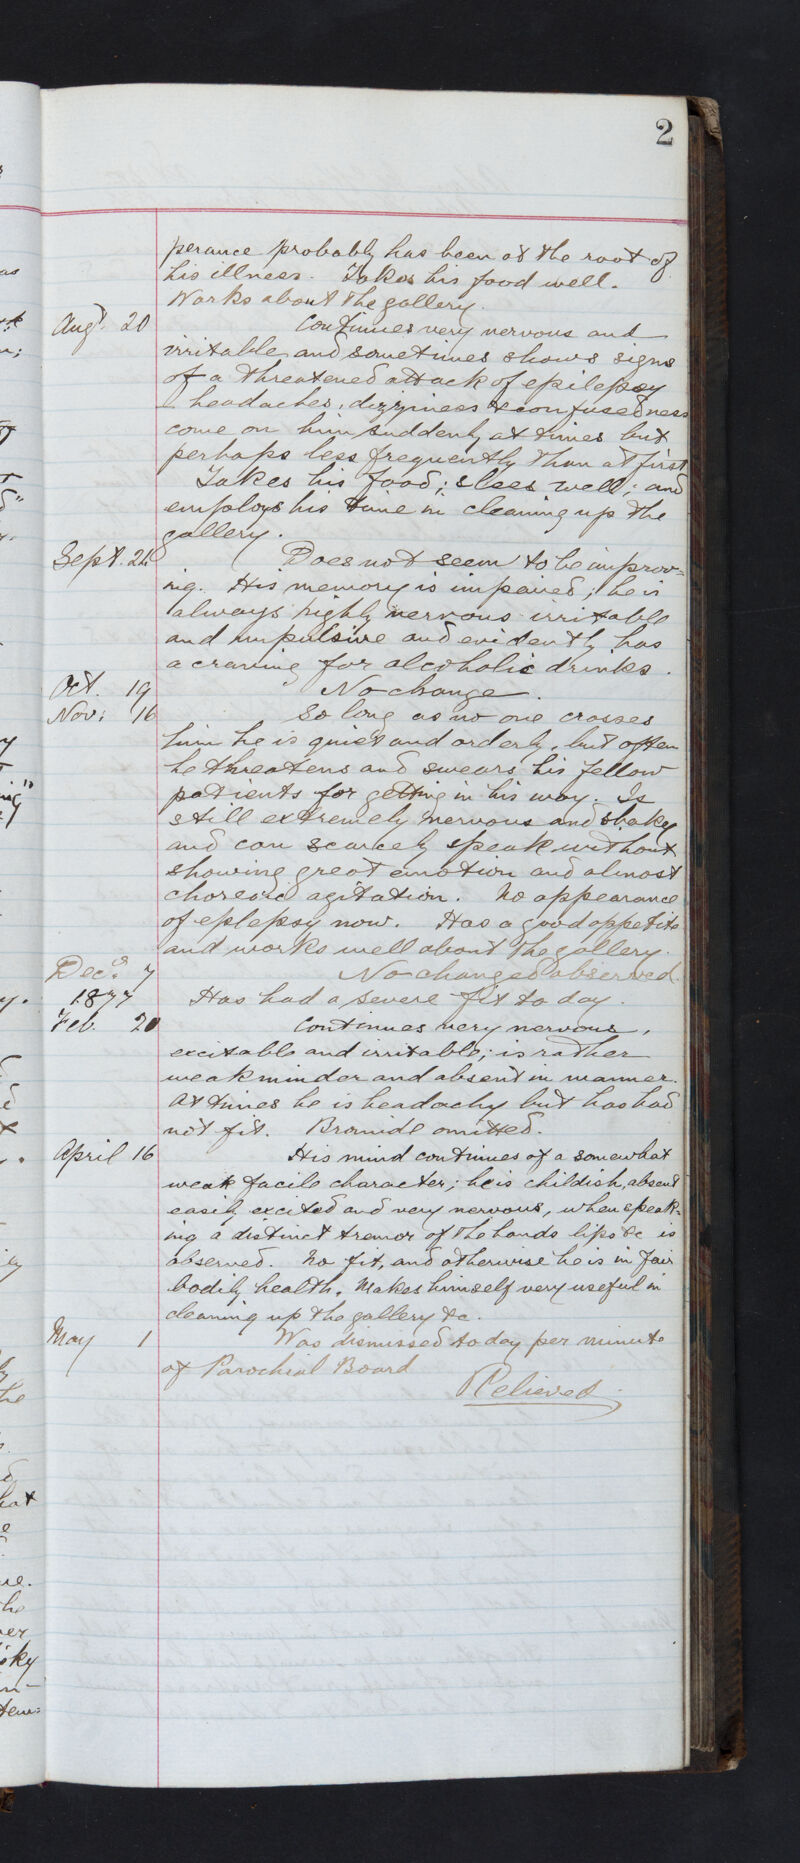 2
perance probably has been at the root of
his illness. Takes his food well.
Works about the gallery.
Augt. 20 Continues very nervous and
irritable and sometimes shows signs
of a threatened attack of epilepsy
headaches, dizziness & confusedness
come on him suddenly at times but
perhaps less frequently than at first
Takes his food; slees well; and
employs his time in cleaning up the
gallery.
Sept. 24 Does not seem to be improv=
ing. His memory is impaired; he is
always highly nervous irritable
and impulsive and evidently has
a craving for alcoholic drinks.
Oct. 19 No change.
Nov: 16 So long as no one crosses
him he is quiet and orderly, but often
he threatens and swears his fellow
patients for getting in his way. Is
still extremely nervous and shaky
and can scarcely speak without
showing great emotion and almost
choreaic agitation. No appearance
of eplepsy now. Has a good appetite
and works well about the gallery.
Dec. 7 No changed observed.
1877 Has had a severe fit to day.
Feb. 20 Continues very nervous,
excitable and irritable; is rather
weak minder and absent in manner.
At times he is headachy but has had
not fit. Bromide omitted.
April 16 His mind continues of a somewhat
weak facile character; he is childish, absent
easily excited and very nervous, when speak=
ing a distinct tremor of the hands lips &c is
observed. No fit, and otherwise he is in fair
bodily health. Makes himself very useful in
cleaning up the gallery &c.
May 1 Was dismissed to day per minute
of Parochial Board
Relieved.